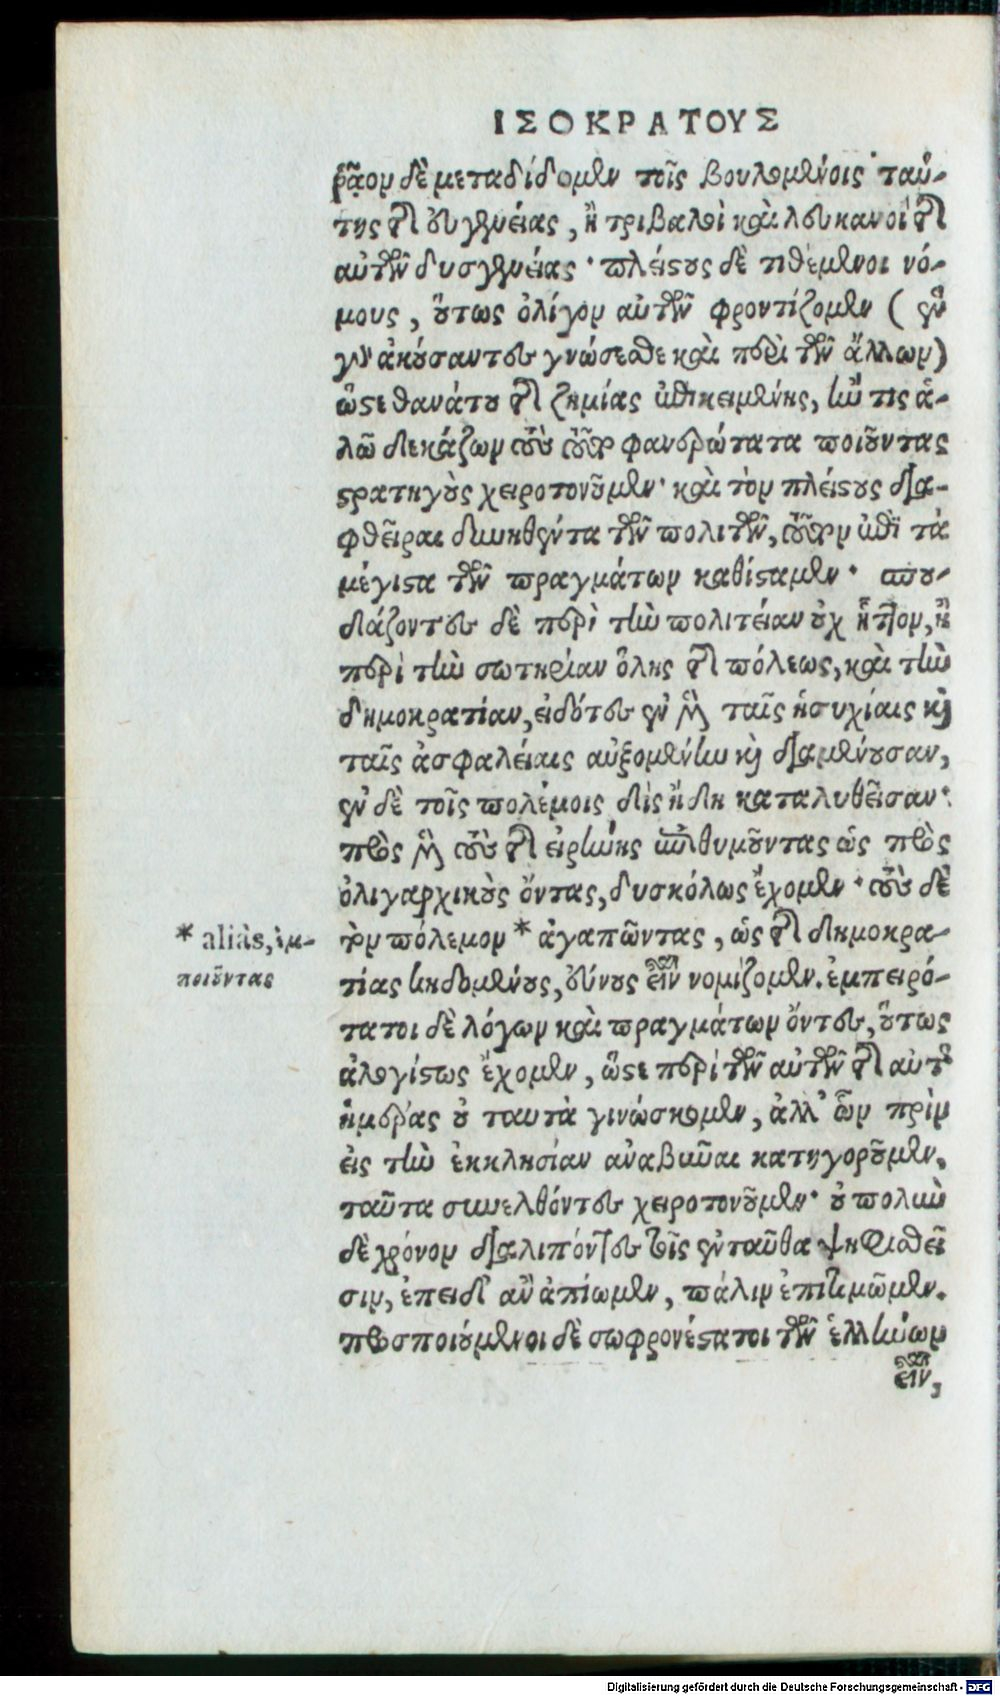 ΙΣΟΚΡΑΤΟΥΣ
ῥᾷον δὲ μεταδίδομεν τοῖς βουλομένοις ταύ-
της τῆς εὐγενείας, ἢ τριβαλοὶ καὶ λευκανοὶ τῆς
αὐτῶν δυσγενείας· πλείςους δὲ τιθέμενοι νό-
μους, οὕτως ὀλίγον αὐτῶν φροντίζομεν (ἓν
γὰρ ἀκούσαντες γνώσεσθε καὶ περὶ τῶν ἄλλων)
ὥςε θανάτου τῆς ζημίας ἐπικειμένης, ἤν τις ἁ-
λῷ δεκάζων τοὺς τοῦτο φανερώτατα ποιοῦντας
ςρατηγοὺς χειροτονοῦμεν· καὶ τὸν πλείςους δια-
φθεῖραι δυνηθέντα τῶν πολιτῶν, τοῦτον ἐπὶ τὰ
μέγιςα τῶν πραγμάτων καθίςαμεν· σπου-
δάζοντες δὲ περὶ τὴν πολιτείαν οὐχ ἧττον, ἢ
περὶ τὴν σωτηρίαν ὅλης τῆς πόλεως, καὶ τὴν
δημοκρατίαν, εἰδότες ἐν μὲν ταῖς ἡσυχίαις καὶ
ταῖς ἀσφαλείαις αὐξομένην καὶ διαμένουσαν,
ἐν δὲ τοῖς πολέμοις δὶς ἤδη καταλυθεῖσαν·
πρὸς μὲν τοὺς τῆς εἰρήνης ἐπιθυμοῦντας ὡς πρὸς
ὀλιγαρχικοὺς ὄντας, δυσκόλως ἔχομεν· τοὺς δὲ
* aliàs, ἐμ-
ποιοῦντας
τὸν πόλεμον * ἀγαπῶντας, ὡς τῆς δημοκρα-
τίας κηδομένους, εὔνους εἶναι νομίζομεν. ἐμπειρό-
τατοι δὲ λόγων καὶ πραγμάτων ὄντες, οὕτως
ἀλογίςως ἔχομεν, ὥςε περὶ τῶν αὐτῶν τῆς αὐτῆς
ἡμέρας οὐ ταυτὰ γινώσκομεν, ἀλλ᾽ ὧν πρὶν
εἰς τὴν ἐκκλησίαν ἀναβῆναι κατηγοροῦμεν.
ταῦτα συνελθόντες χειροτονοῦμεν· οὐ πολὺν
δὲ χρόνον διαλιπόντες τοῖς ἐνταῦθα ψηφισθεῖ
σιν, ἐπειδ᾽ ἂν ἀπίωμεν, πάλιν ἐπιτιμῶμεν.
προσποιούμενοι δὲ σωφρονέςατοι τῶν ἑλλήνων
εἶναι,
Digitalisierung gefördert durch die Deutsche Forschungsgemeinschaft - DFG